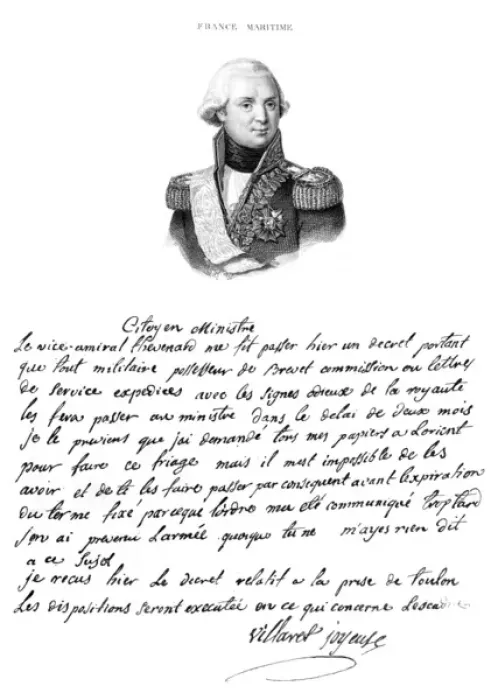 FRANCE MARITIME
Citoyen Ministre
Le vice-amiral thevenard me fit passer hier un decret portant
que tout militaire possesseur de Brevet commission ou lettres
de service expediees avec les signes odieux de la royauté
les fera passer au ministre dans le delai de deux mois
je te previens que jai demandé tous mes papiers a Lorient
pour faire ce triage mais il mest impossible de les
avoir et de te les faire passer par consequent avant lexpiration
du terme fixé parceque lordre ma eté communiqué trop tard
jen ai prevenu Larmée quoique tu ne m'ayes rien dit
a ce sujet
je recus hier Le decret relatif a la prise de toulon
Les dispositions seront executée en ce qui concerne Lescadre
villaret joyeuse